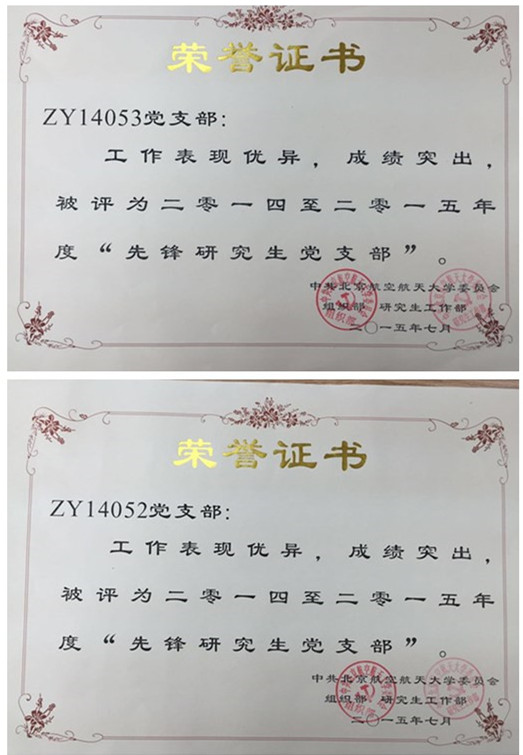 荣誉证书
ZY14053党支部：
工作表现优异，成绩突出，
被评为二零一四至二零一五年
度“先锋研究生党支部”。
中共北京航空航天大学委员会
组织部 研究生工作部
二〇一五年七月
组织部
荣誉证书
ZY14052党支部：
工作表现优异，成绩突出，
被评为二零一四至二零一五年
度“先锋研究生党支部”。
中共北京航空航天大学委员会
组织部 研究生工作部
二〇一五年七月
组织部